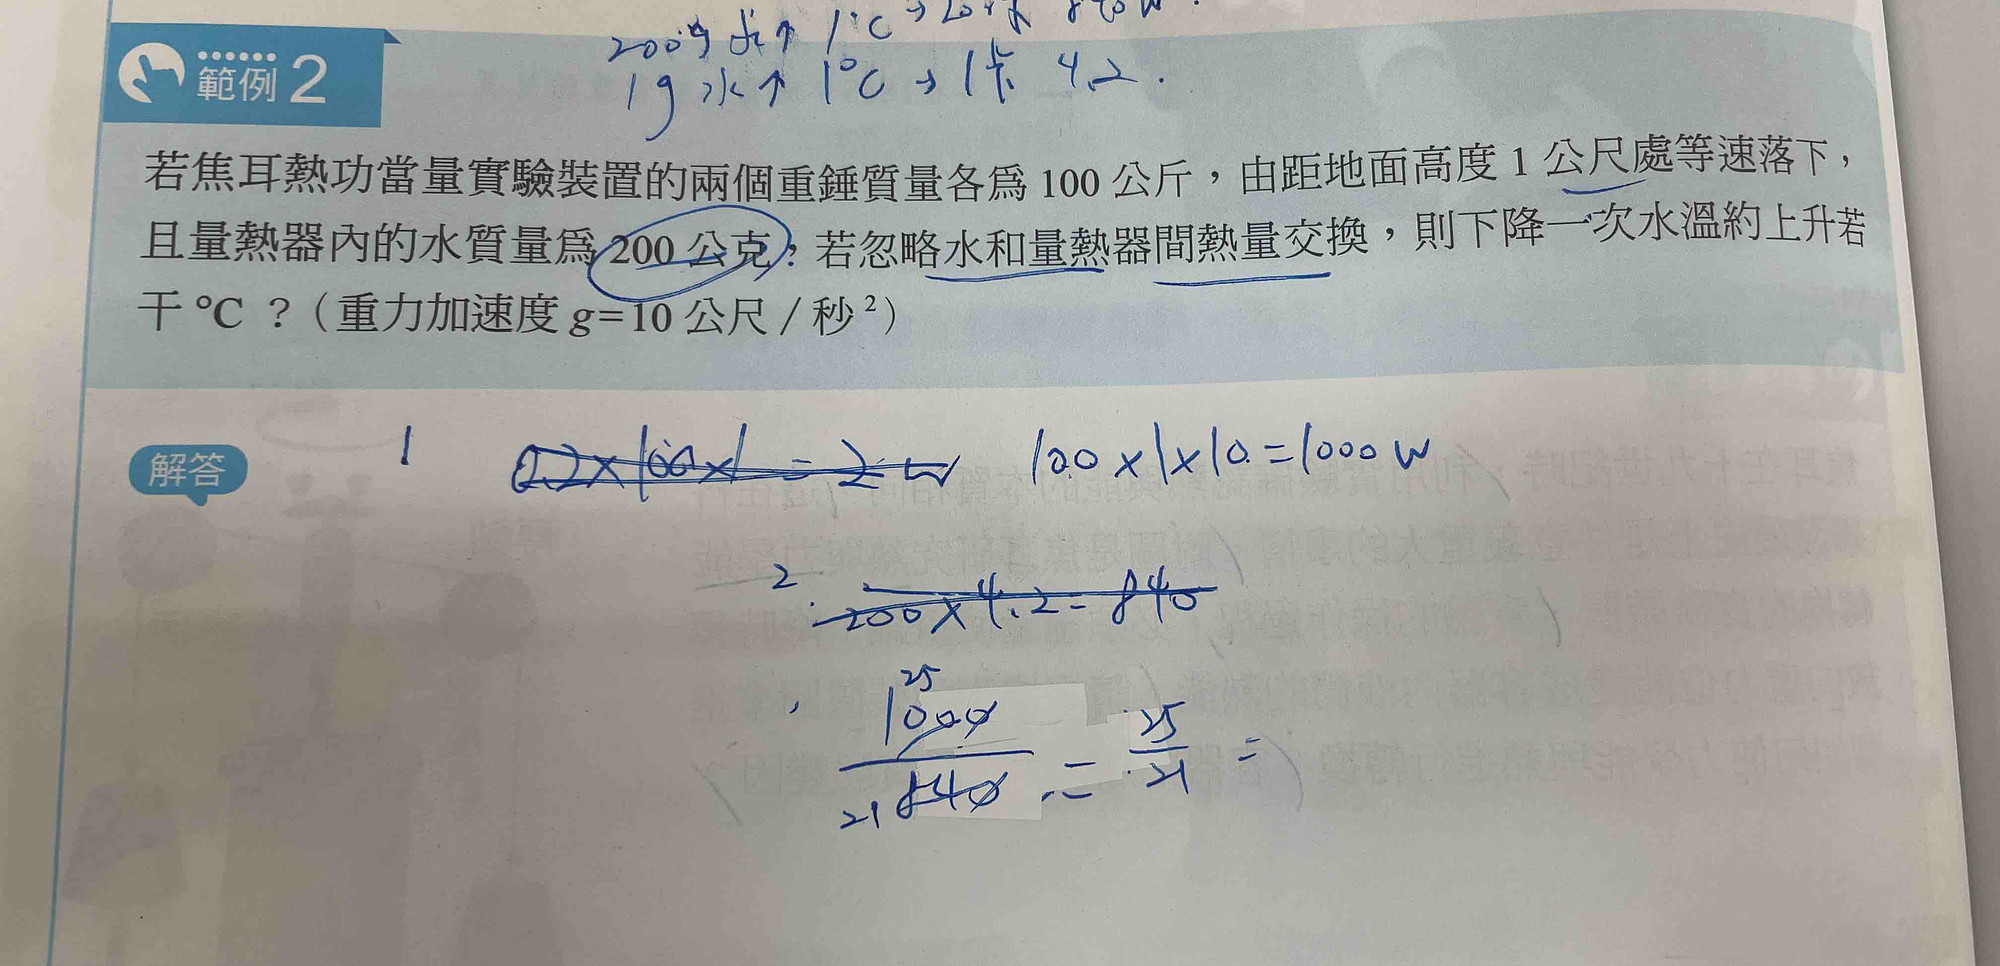 200g 水↑ 1°C →
1g 水↑ 1°C → 1卡 4.2.
範例 2
若焦耳熱功當量實驗裝置的兩個重錘質量各為 100 公斤，由距地面高度 1 公尺處等速落下，
且量熱器內的水質量為 200 公克，若忽略水和量熱器間熱量交換，則下降一次水溫約上升若
干 °C ？（重力加速度 g=10 公尺 / 秒²）
解答
1 0.2×100×1=2 W 100×1×10=1000 W
2. 200×4.2=840
25
1000
21 840 = 25/21 =